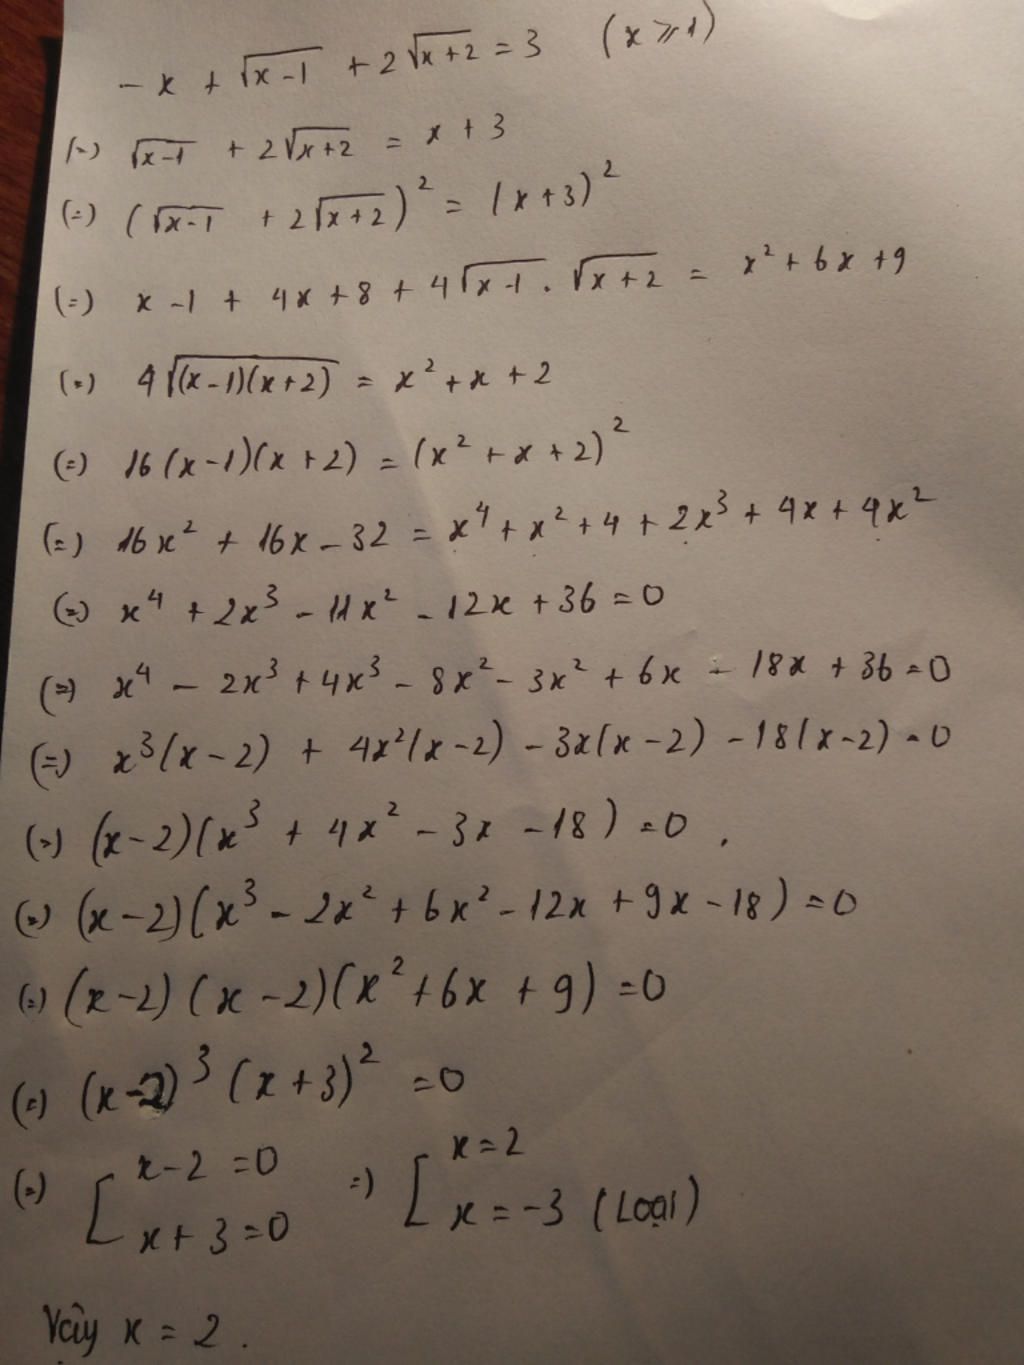 - x + √(x-1) + 2√(x+2) = 3 (x ≥ 1)
(=) √(x-1) + 2√(x+2) = x + 3
(=) (√(x-1) + 2√(x+2))² = (x+3)²
(=) x - 1 + 4x + 8 + 4√(x-1) . √(x+2) = x² + 6x + 9
(=) 4√((x-1)(x+2)) = x² + x + 2
(=) 16(x-1)(x+2) = (x² + x + 2)²
(=) 16x² + 16x - 32 = x⁴ + x² + 4 + 2x³ + 4x + 4x²
(=) x⁴ + 2x³ - 11x² - 12x + 36 = 0
(=) x⁴ - 2x³ + 4x³ - 8x² - 3x² + 6x - 18x + 36 = 0
(=) x³(x-2) + 4x²(x-2) - 3x(x-2) - 18(x-2) = 0
(=) (x-2)(x³ + 4x² - 3x - 18) = 0 .
(=) (x-2)(x³ - 2x² + 6x² - 12x + 9x - 18) = 0
(=) (x-2)(x-2)(x² + 6x + 9) = 0
(=) (x-2)³(x+3)² = 0
(=) [ x-2 = 0 =) [ x = 2
x + 3 = 0 x = -3 (Loại)
Vậy x = 2 .